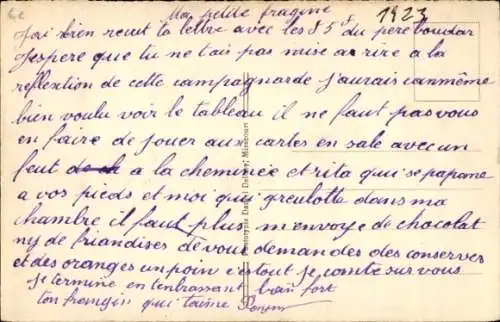 Ma petite fragine
1923
J'ai bien recut la lettre avec les 85 du pere boudar
J'espere que tu ne t'ai pas mise a rire a la
reflextion de cette campagnarde j'aurais canmême
bien voulu voir le tableau il ne faut pas vous
en faire de jouer aux cartes en sale avec un
feut a la cheminée et rita qui se papame
a vos pieds et moi qui greulotte dans ma
chambre il faut plus m'envoye de chocolat
ny de friandises de vous demandes des conserves
et des oranges un poin c'est tout je conte sur vous
je termine en t'enbrassant bien fort
ton frangin qui t'aime